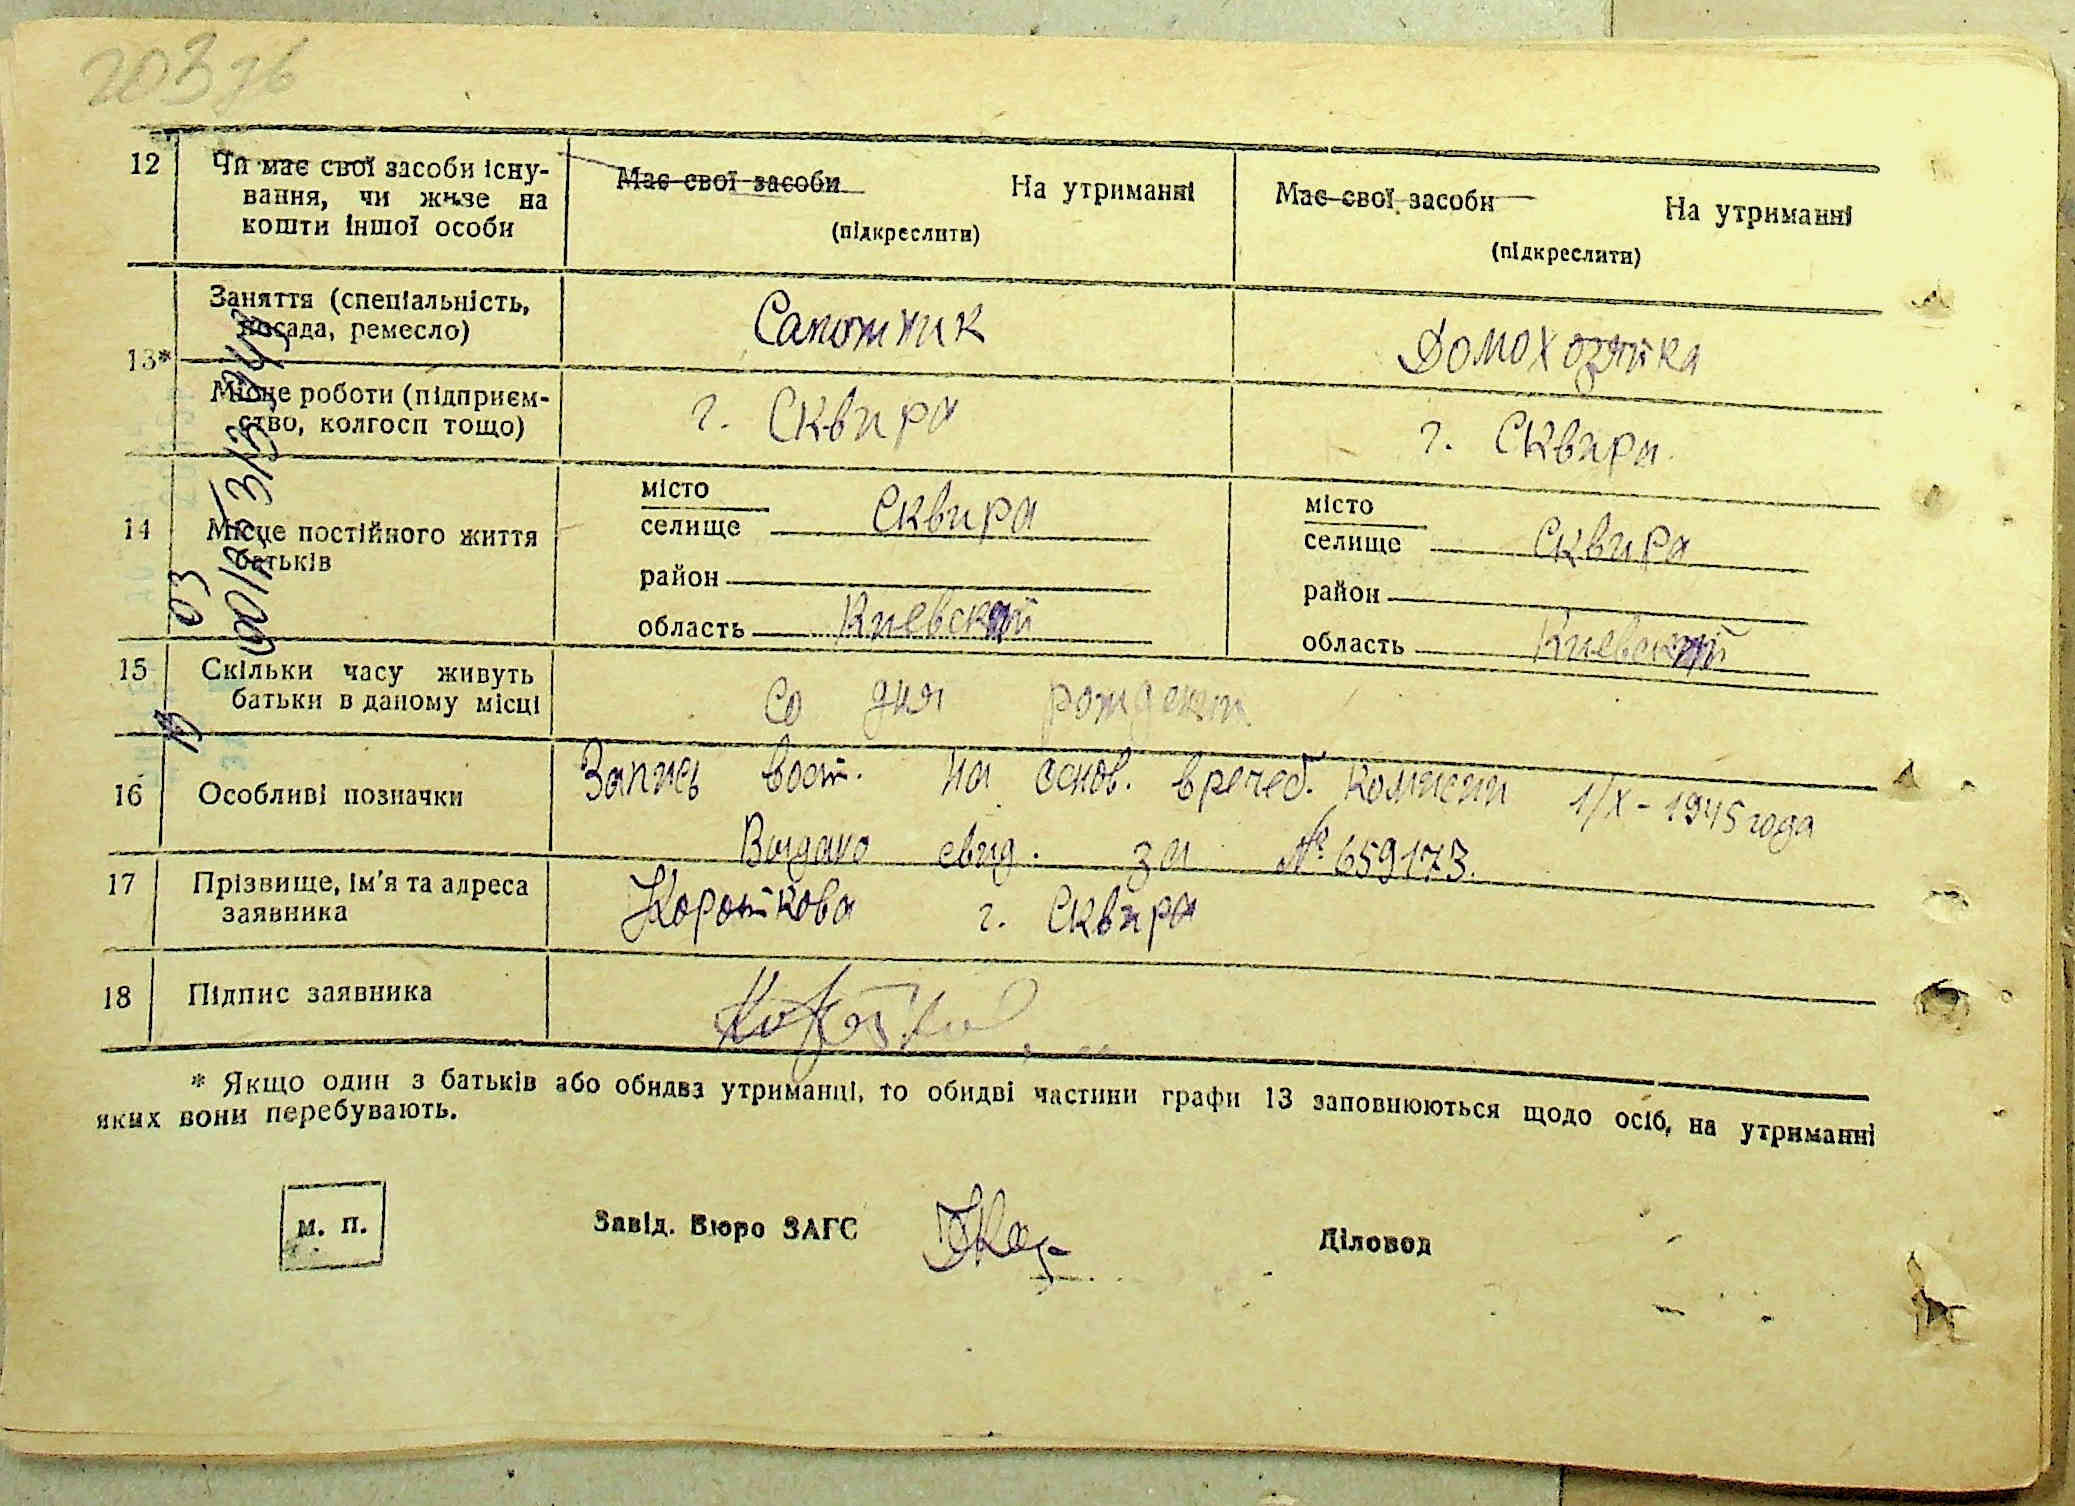 203 зв
12
Чи має свої засоби існу-
вання, чи живе на
кошти іншої особи
Має свої засоби На утриманні
(підкреслити)
Має свої засоби На утриманні
(підкреслити)
13*
Заняття (спеціальність,
посада, ремесло)
Сапожник
Домохозяйка
Місце роботи (підприєм-
ство, колгосп тощо)
г. Сквира
г. Сквира
14
Місце постійного життя
батьків
місто
селище Сквира
район
область Киевской
місто
селище Сквира
район
область Киевской
15
Скільки часу живуть
батьки в даному місці
Со дня рождения
16
Особливі позначки
Запись вост. на основ. врачеб. комисии 1/X-1945 года
Выдано свид. за № 659173.
17
Прізвище, ім'я та адреса
заявника
Короткова г. Сквира
18
Підпис заявника
* Якщо один з батьків або обидва утриманці, то обидві частини графи 13 заповнюються щодо осіб, на утриманні
яких вони перебувають.
м. п.
Завід. Бюро ЗАГС
Діловод